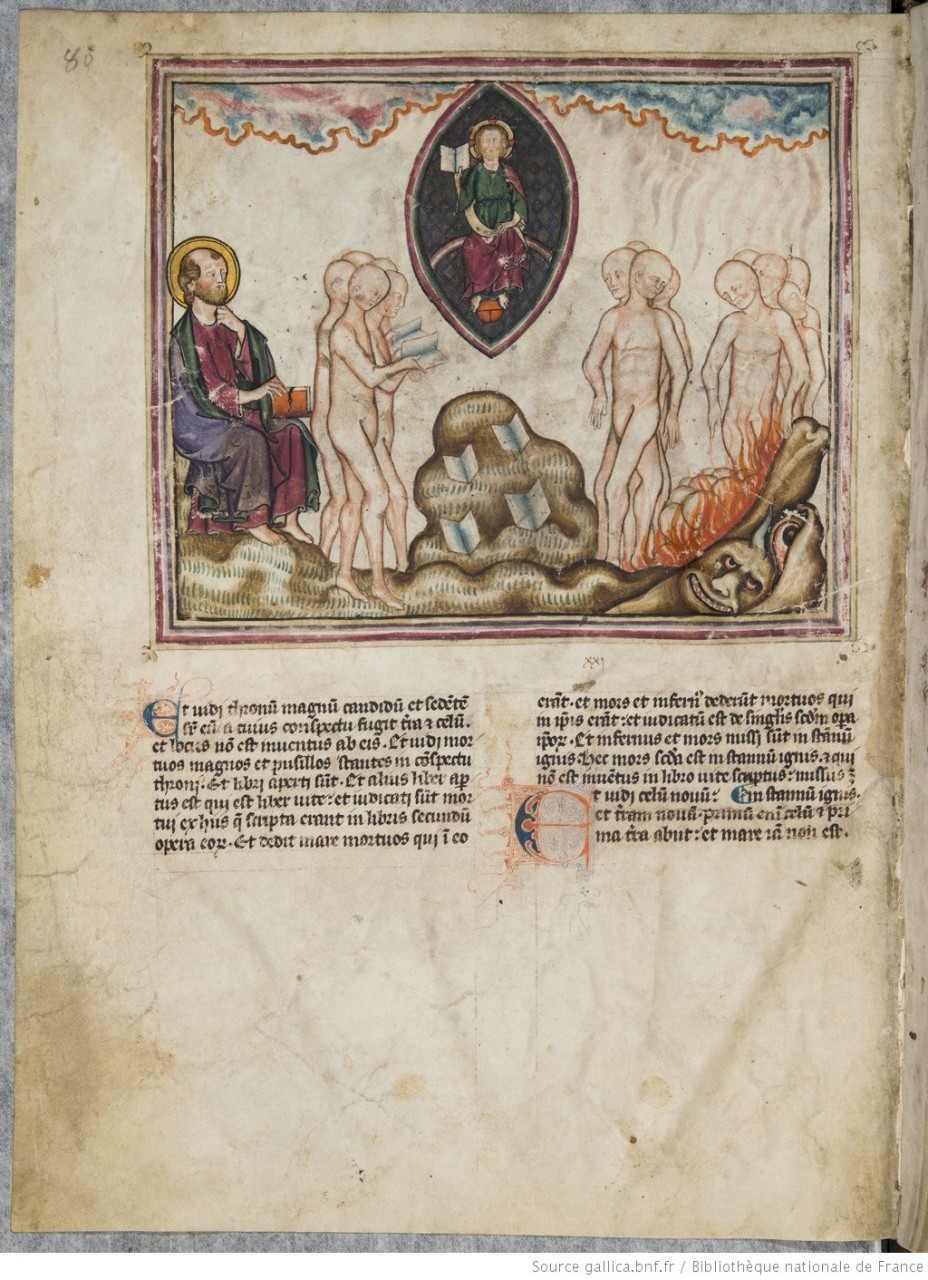 80
Et uidi thronū magnū candidū et sedētē
sr̄ eū a cuius conspectu fugit tr̄a ⁊ celū.
et locus nō est inuentus ab eis. Et uidi mor
tuos magnos et pusillos stantes in cōspectu
throni. Et libri aperti sūt. Et alius liber aꝑ
tus est qui est liber uite: et iudicati sūt mor
tui ex hiis q̄ scripta erant in libris secundū
opera eoꝝ. Et dedit mare mortuos qui ī eo
xxj
erāt. et mors et infernꝰ dederūt mortuos qui
in ip̄is erāt: et iudicatū est de singlis scdm opa
ip̄oꝝ. Et infernus et mors missi sūt in stanū
ignis. Hec mors scd̄a est in stannū ignis. ⁊ qui
nō est inuētus in libro uite scriptus: missus ē
in stannū ignis.
Et uidi celū nouū:
et tr̄am nouā. primū enī celū ⁊ pri
ma tr̄a abiit: et mare iā non est.
Source gallica.bnf.fr / Bibliothèque nationale de France